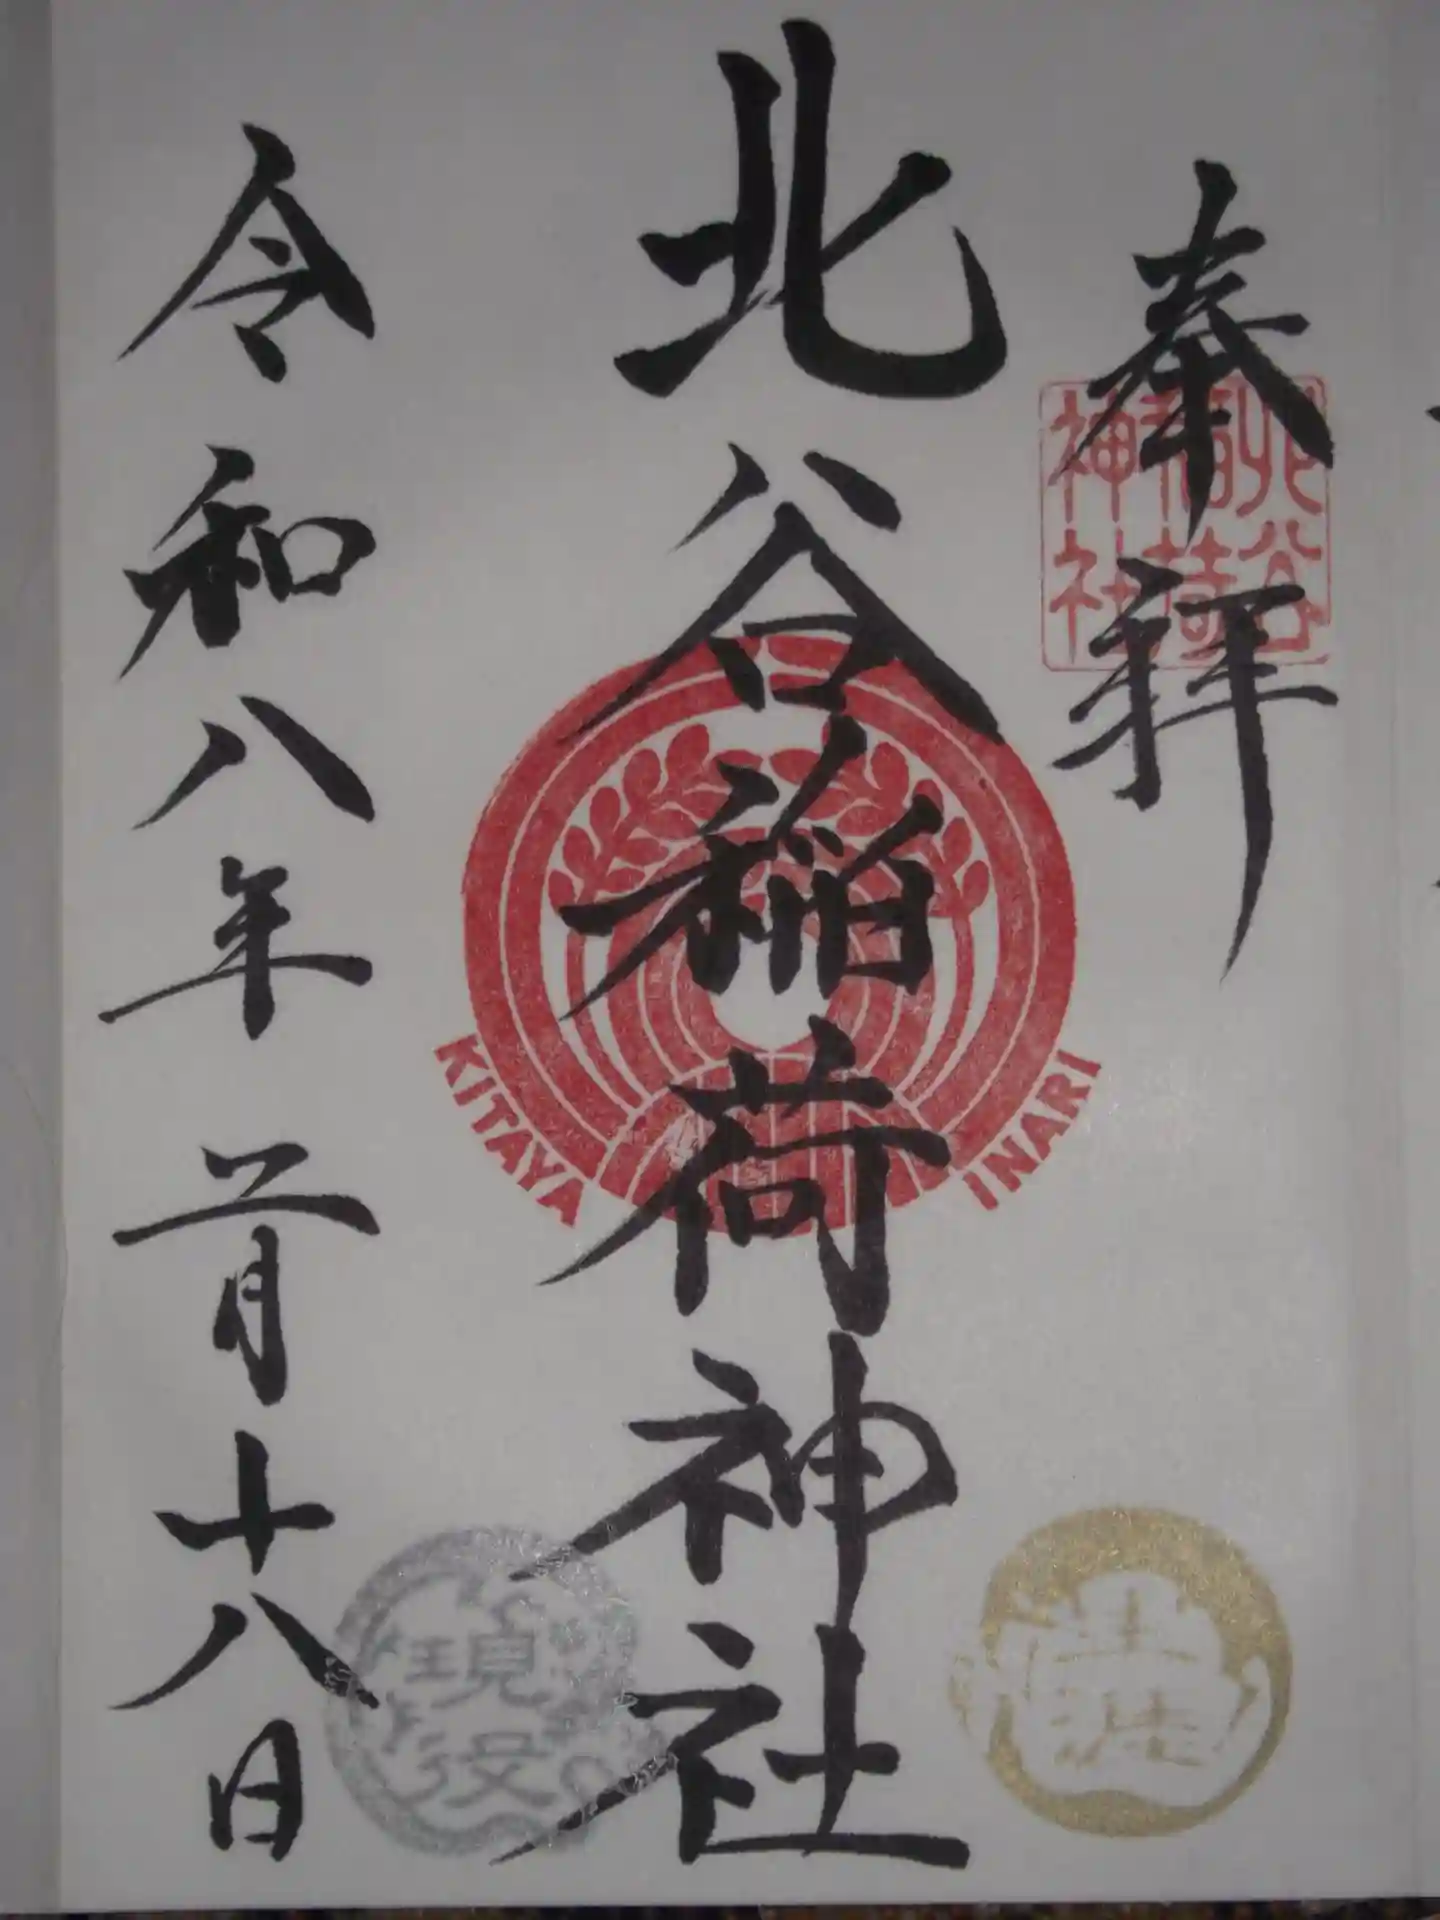 奉拝
北谷
稲荷
神社
北谷稲荷神社
KITAYA INARI
令和八年三月十八日
生涯
現役